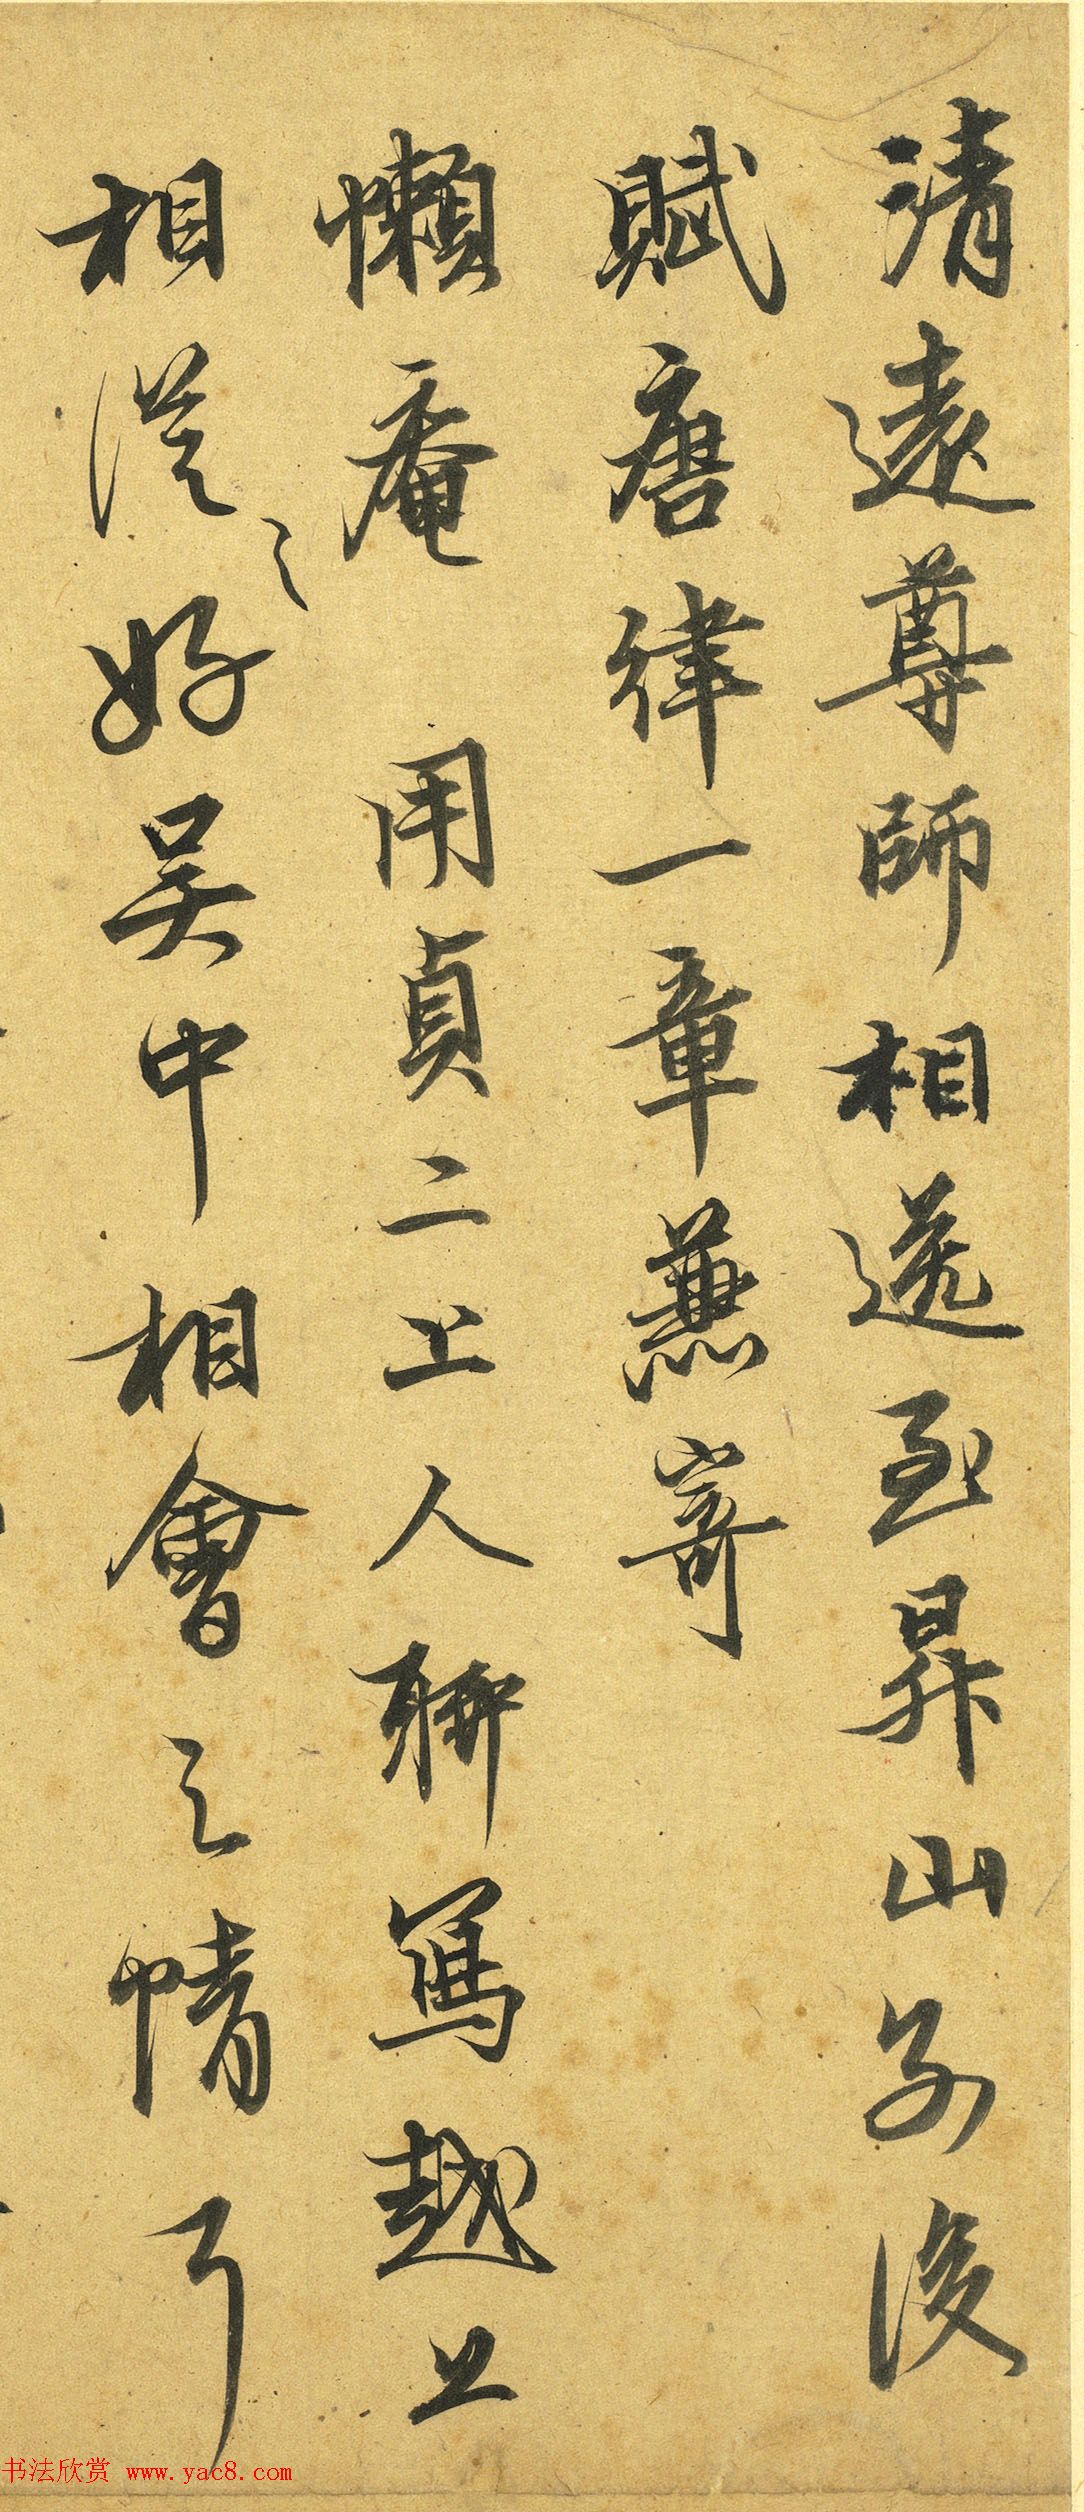 清遠尊師相送至昇山別後
賦唐律一章兼寄
懶菴 用貞二上人聊寫越上
相從之好吳中相會之情耳
书法欣赏 www.yac8.com